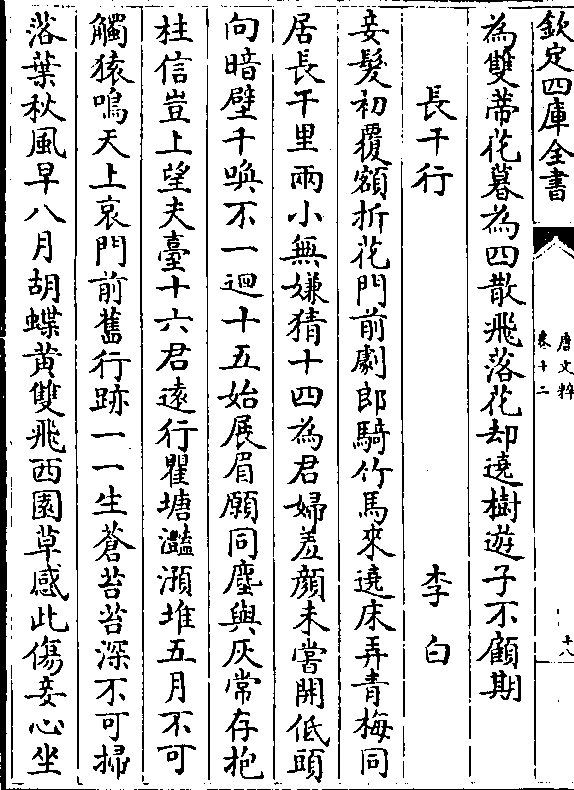 欽定四庫全書
唐文粹
卷十二
十八
為雙蒂花暮為四散飛落花却遶樹遊子不顧期
長干行　李白
妾髮初覆額折花門前劇郎騎竹馬來遶床弄青梅同
居長干里兩小無嫌猜十四為君婦羞顔未嘗開低頭
向暗壁千喚不一迴十五始展眉願同塵與灰常存抱
柱信豈上望夫臺十六君遠行瞿塘灩澦堆五月不可
觸猿鳴天上哀門前舊行跡一一生蒼苔苔深不可掃
落葉秋風早八月胡蝶黄雙飛西園草感此傷妾心坐